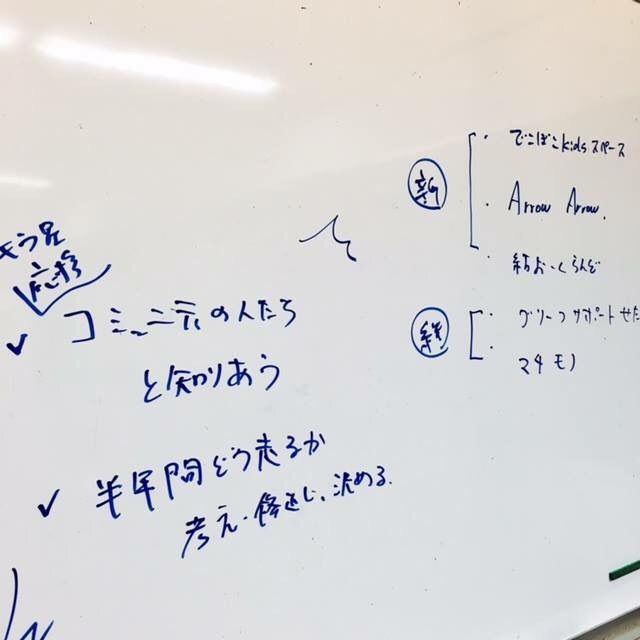 応援
コミュニティの人たち
と知りあう
半年間どう走るか
考え、修正し、決める。
新
・でこぼこkidsスペース
・Arrow Arrow.
・結お・くらんど
継
・グリーフサポートせた
・マチモノ